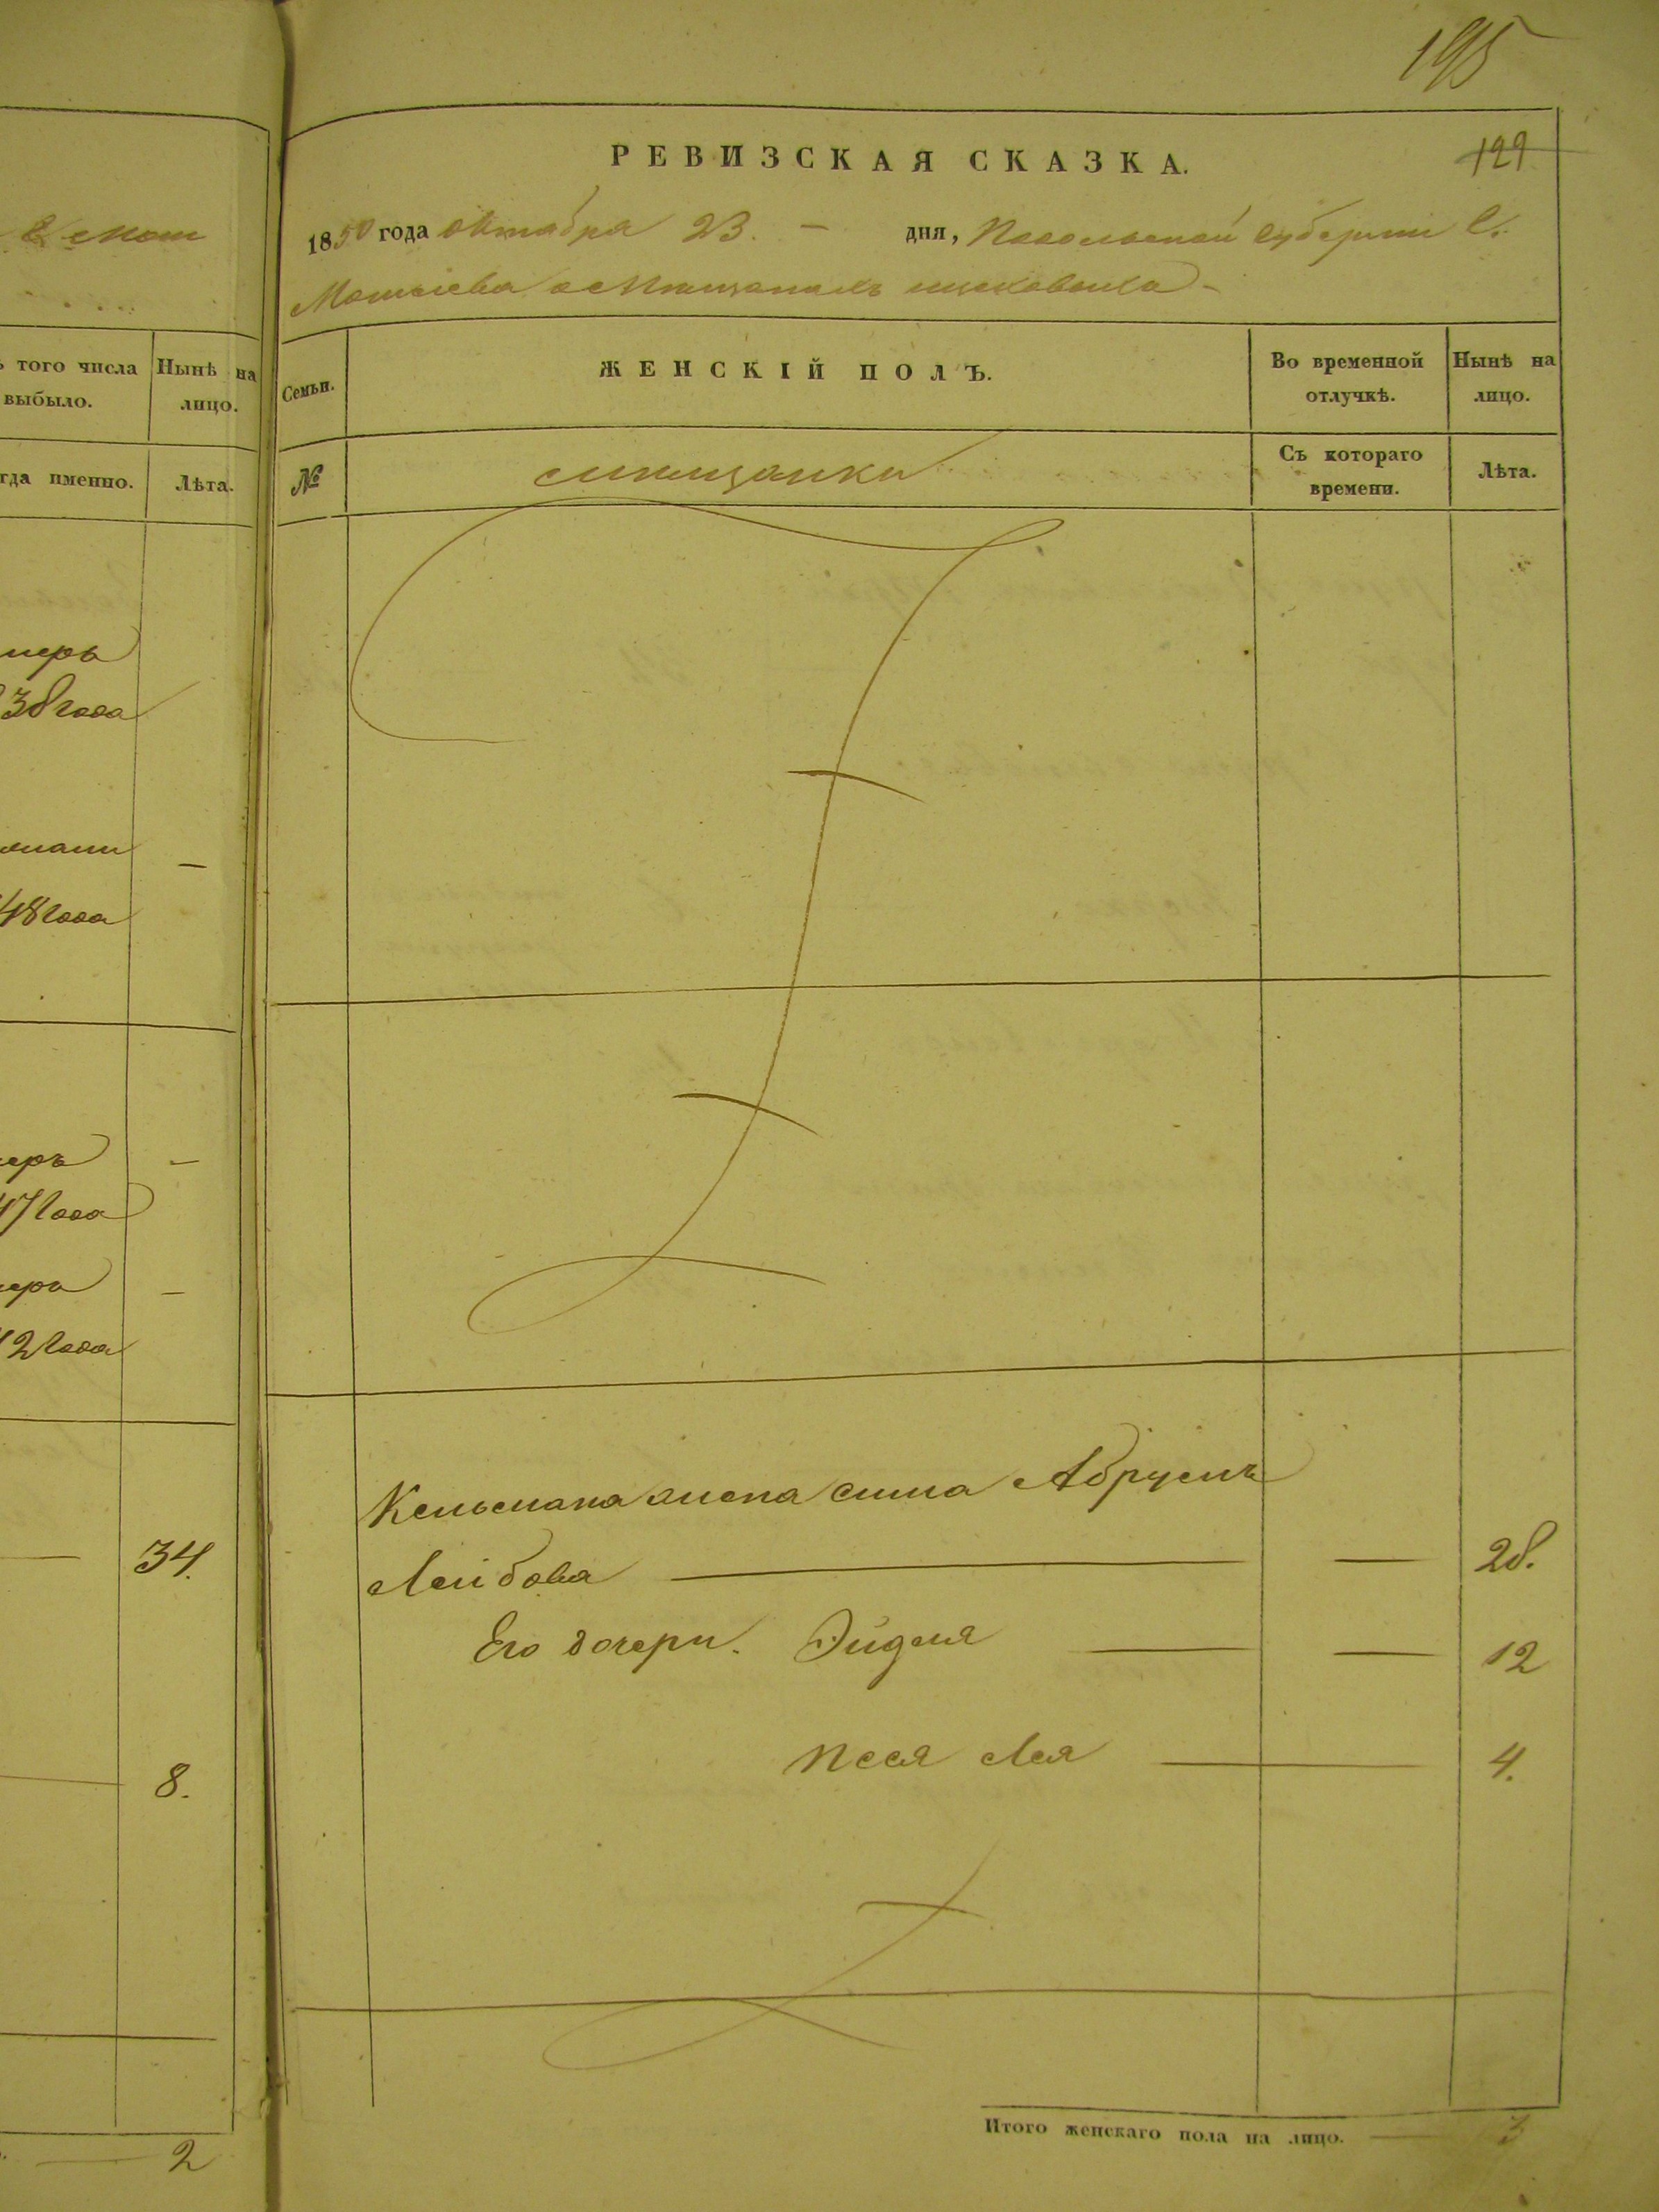 195
РЕВИЗСКАЯ СКАЗКА.
129
1850 года Октября 23. – дня, Подольской Губернии С.
о Мещанахъ
того числа
выбыло.
Нынѣ на
лицо.
Семьи.
ЖЕНСКІЙ ПОЛЪ.
Во временной
отлучкѣ.
Нынѣ на
лицо.
гда именно.
Лѣта.
№
мещанки
Съ котораго
времени.
Лѣта.
меръ
38 года
48 года
меръ
47 года
меръ
42 года
34.
8.
2
Кельмана жена Сима Абрумъ
Лейбова — — 28.
Его дочери. Эйдля — — 12
Песя Лея — 4.
Итого женскаго пола на лицо. — 3